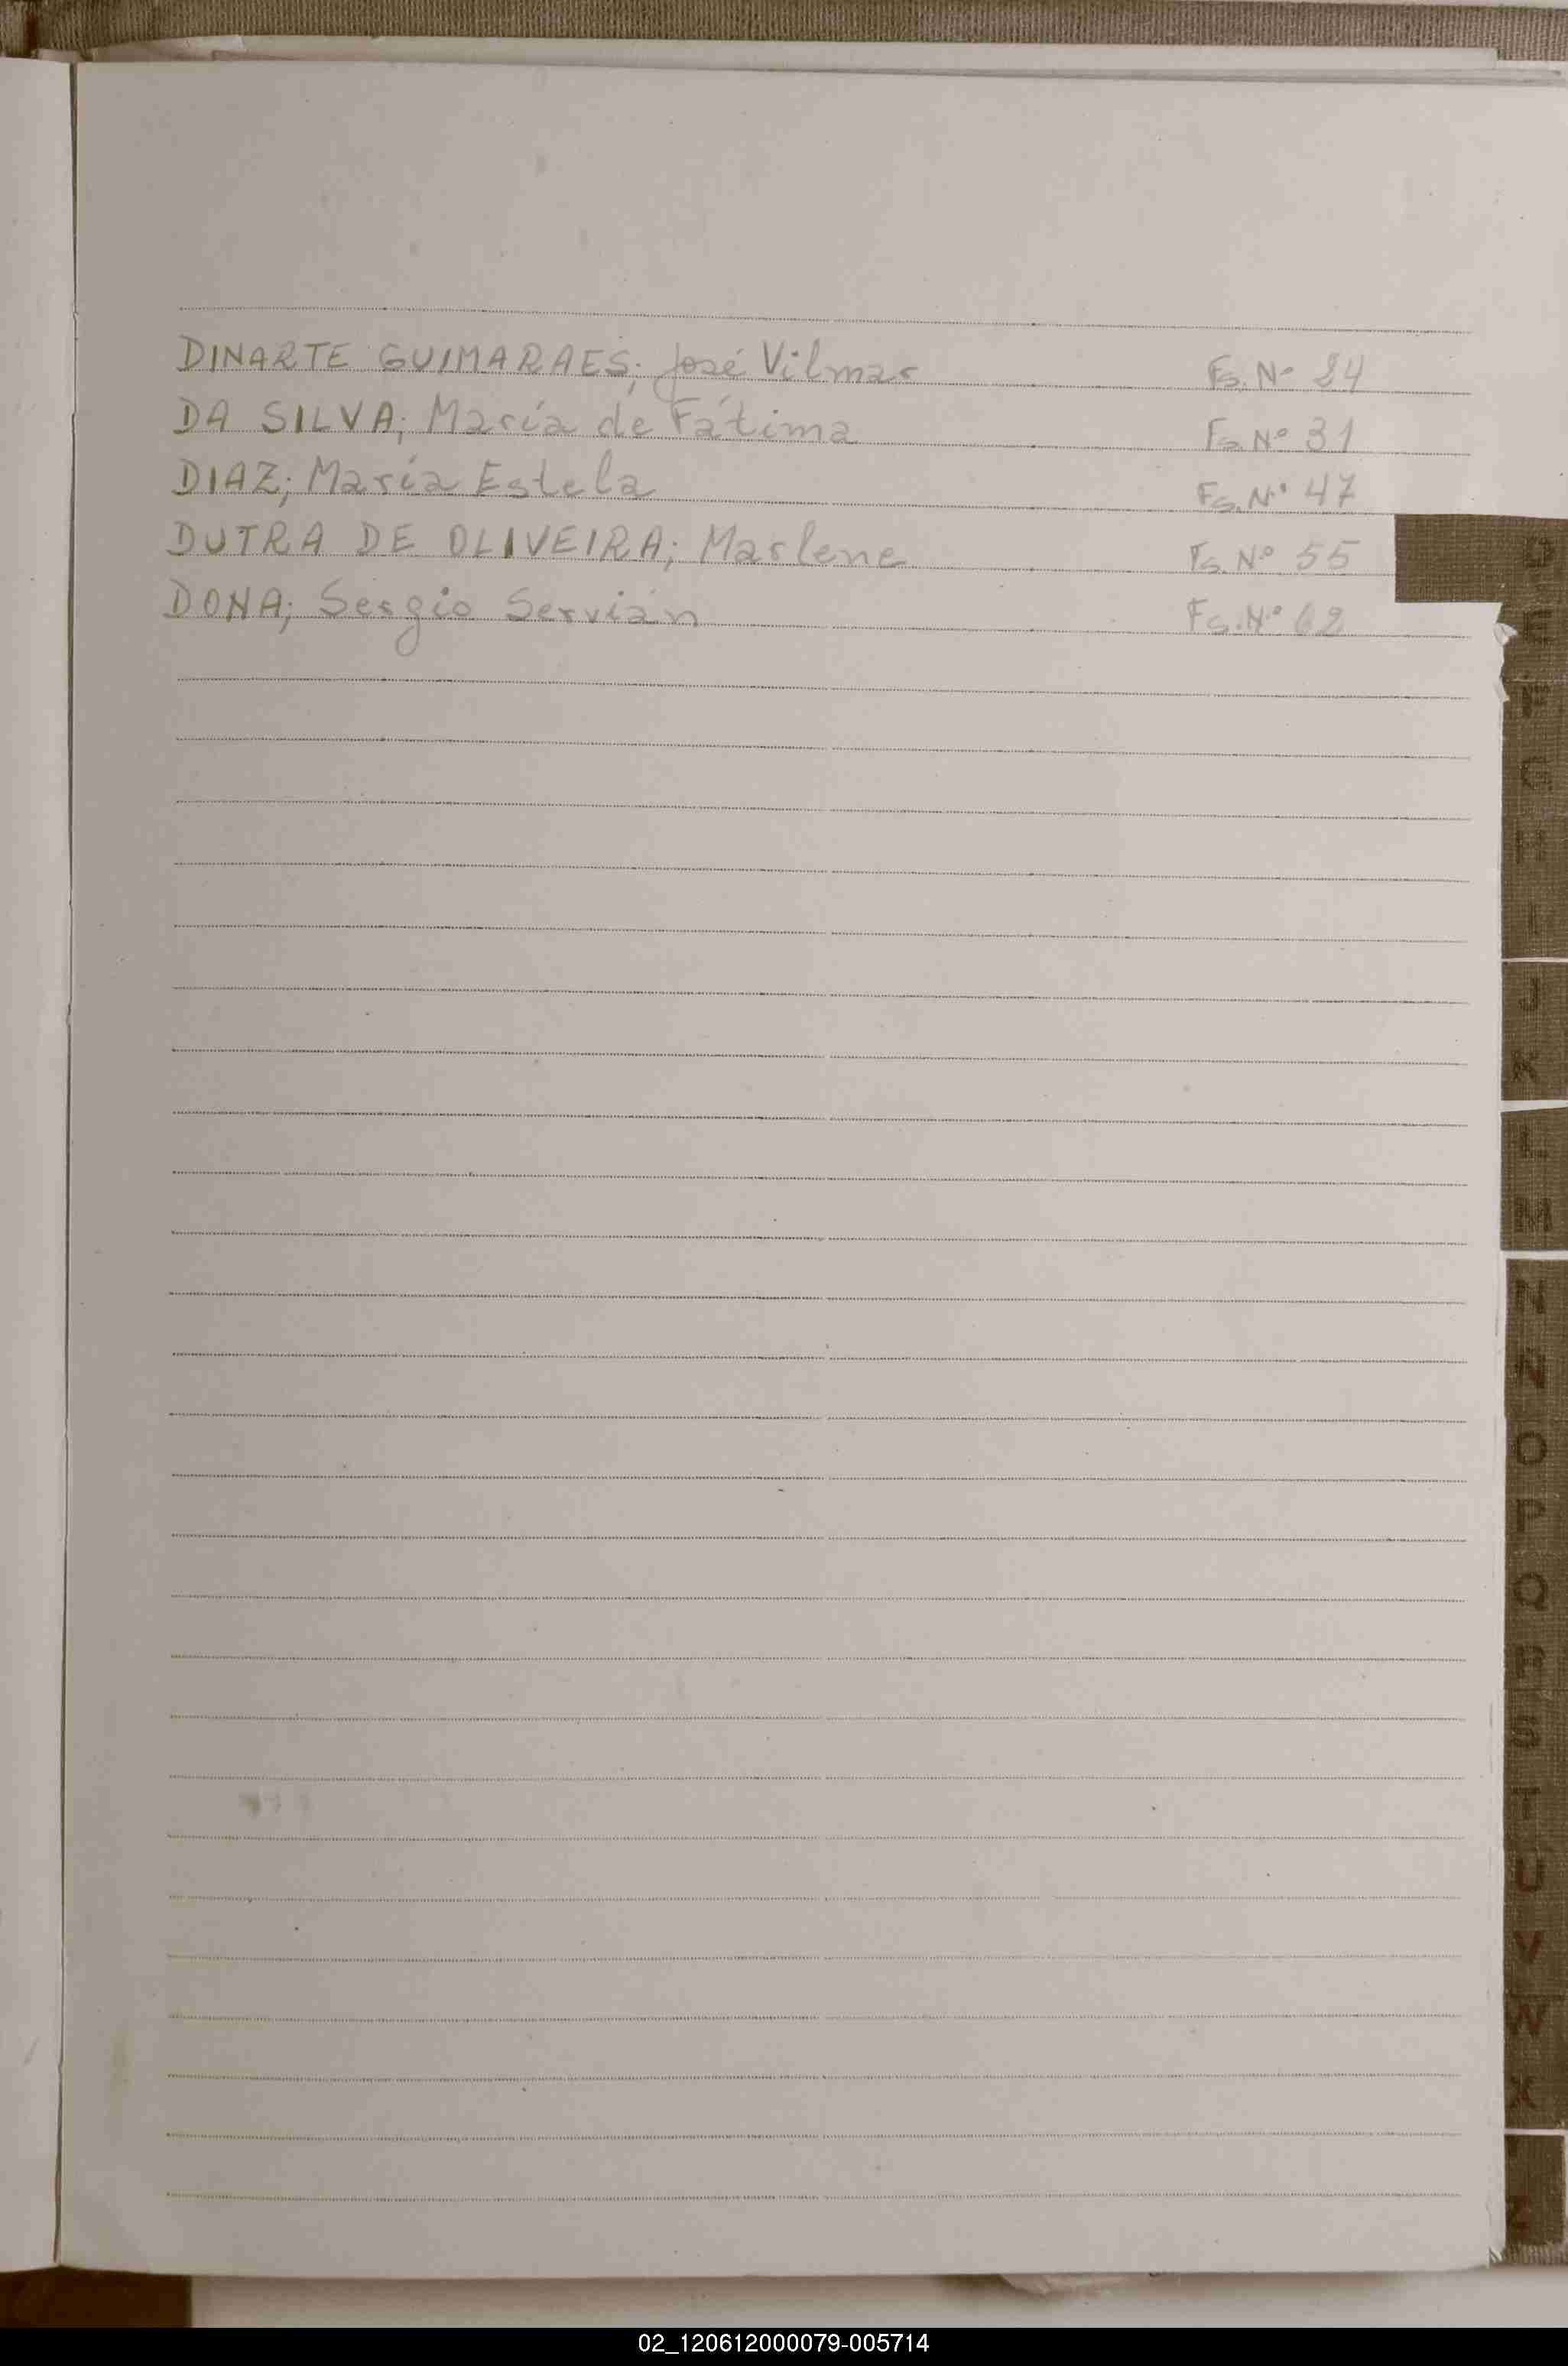 DINARTE GUIMARAES; José Vilmar Fs. Nº 24
DA SILVA; María de Fátima Fs. Nº 31
DIAZ; María Estela Fs. Nº 47
DUTRA DE OLIVEIRA; Marlene Fs. Nº 55
DONA; Sergio Servián Fs. Nº 62
D
E
F
G
H
I
J
K
L
M
N
Ñ
O
P
Q
R
S
T
U
V
W
X
Z
02_120612000079-005714